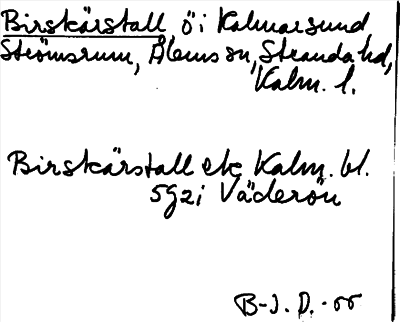 Birskärstall ö i Kalmarsund
Strömsrum, Ålems sn, Stranda hd,
Kalm. l.
Birskärstall ek Kalm. bl.
5g2i Väderön
B-J. D. -55